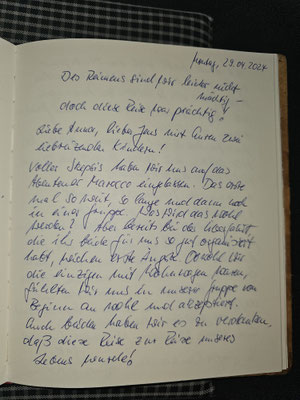 Montag, 29.04.2024
Des Reimens sind wir leider nicht
mächtig –
doch diese Reise war prächtig!
Liebe Anna, lieber Jens mit Euren zwei
liebreizenden Kindern!
Voller Skepsis haben wir uns auf das
Abenteuer Marocco eingelassen. Das erste
mal so weit, so lange und dann noch
in einer Gruppe. Was wird das wohl
werden? Aber bereits bei der Überfahrt
die ihr beide für uns so gut organisiert
habt, wichen erste Ängste. Obwohl wir
die einzigen mit Wohnwagen waren,
fühlten wir uns in unserer Gruppe von
Beginn an wohl und akzeptiert.
Euch beiden haben wir es zu verdanken,
daß diese Reise zur Reise unseres
Lebens wurde!